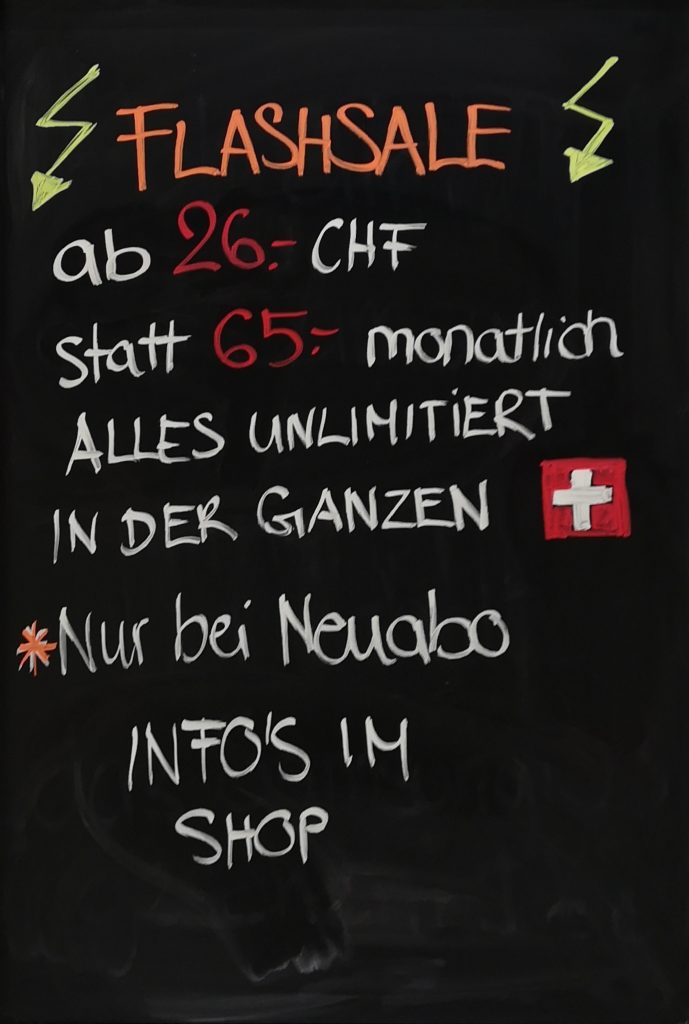 FLASHSALE
ab 26.- CHF
statt 65.- monatlich
ALLES UNLIMITiERT
IN DER GANZEN
*Nur bei Neuabo
INFO'S IM
SHOP